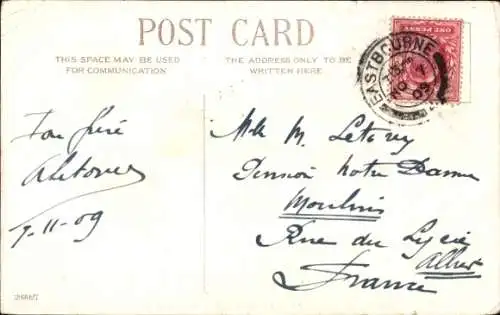 POST CARD
THIS SPACE MAY BE USED
FOR COMMUNICATION
THE ADDRESS ONLY TO BE
WRITTEN HERE
ONE PENNY
EASTBOURNE
NO 7
09
Ton frère
7-11-09
Mlle M. Letovey
Pension Notre Dame
Moulins
Rue du Lycée
Allier
France